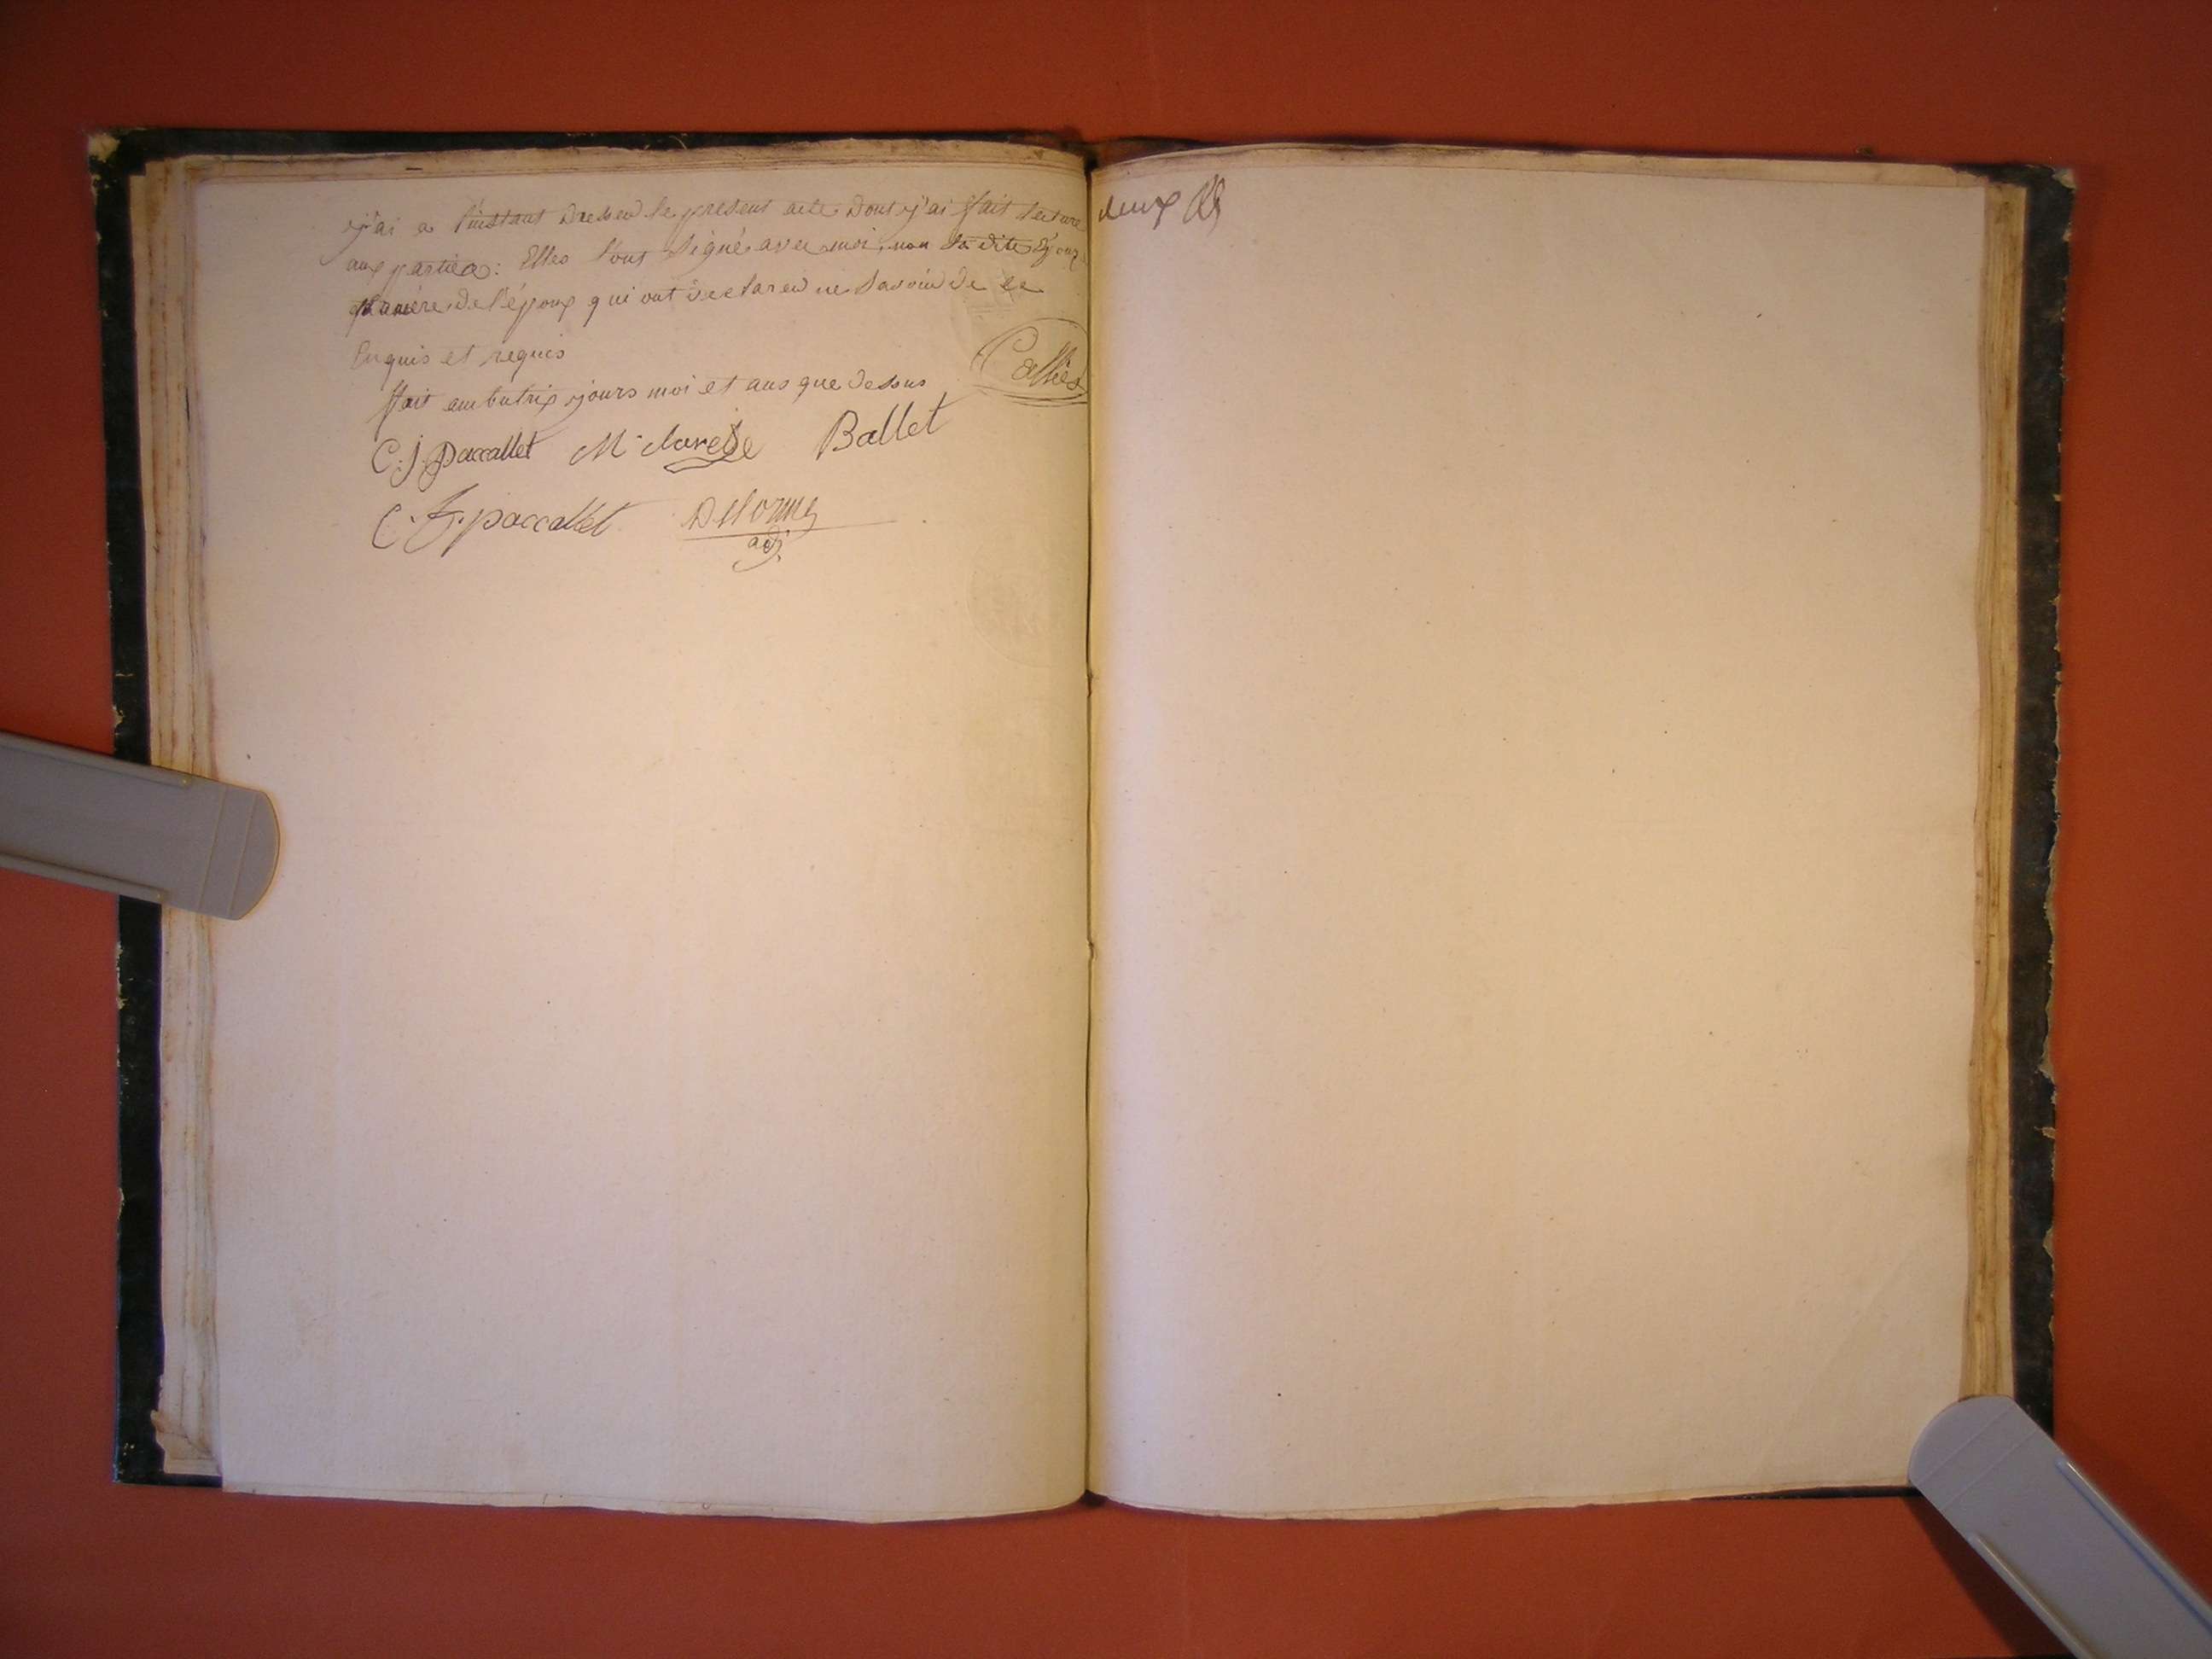 j'ai a l'instant dressed le present acte dont j'ai fait lecture
aux parties: Elles l'ont signé avec moi, non la dite Epouz
mère de l'époux qui ont declared ne savoir de ce
Enquis et requis
fait ambutrix jours moi et ans que dessus
Callies
C. j. paccallet M Ballet
C. F. paccallet Delorme
adj.
deux